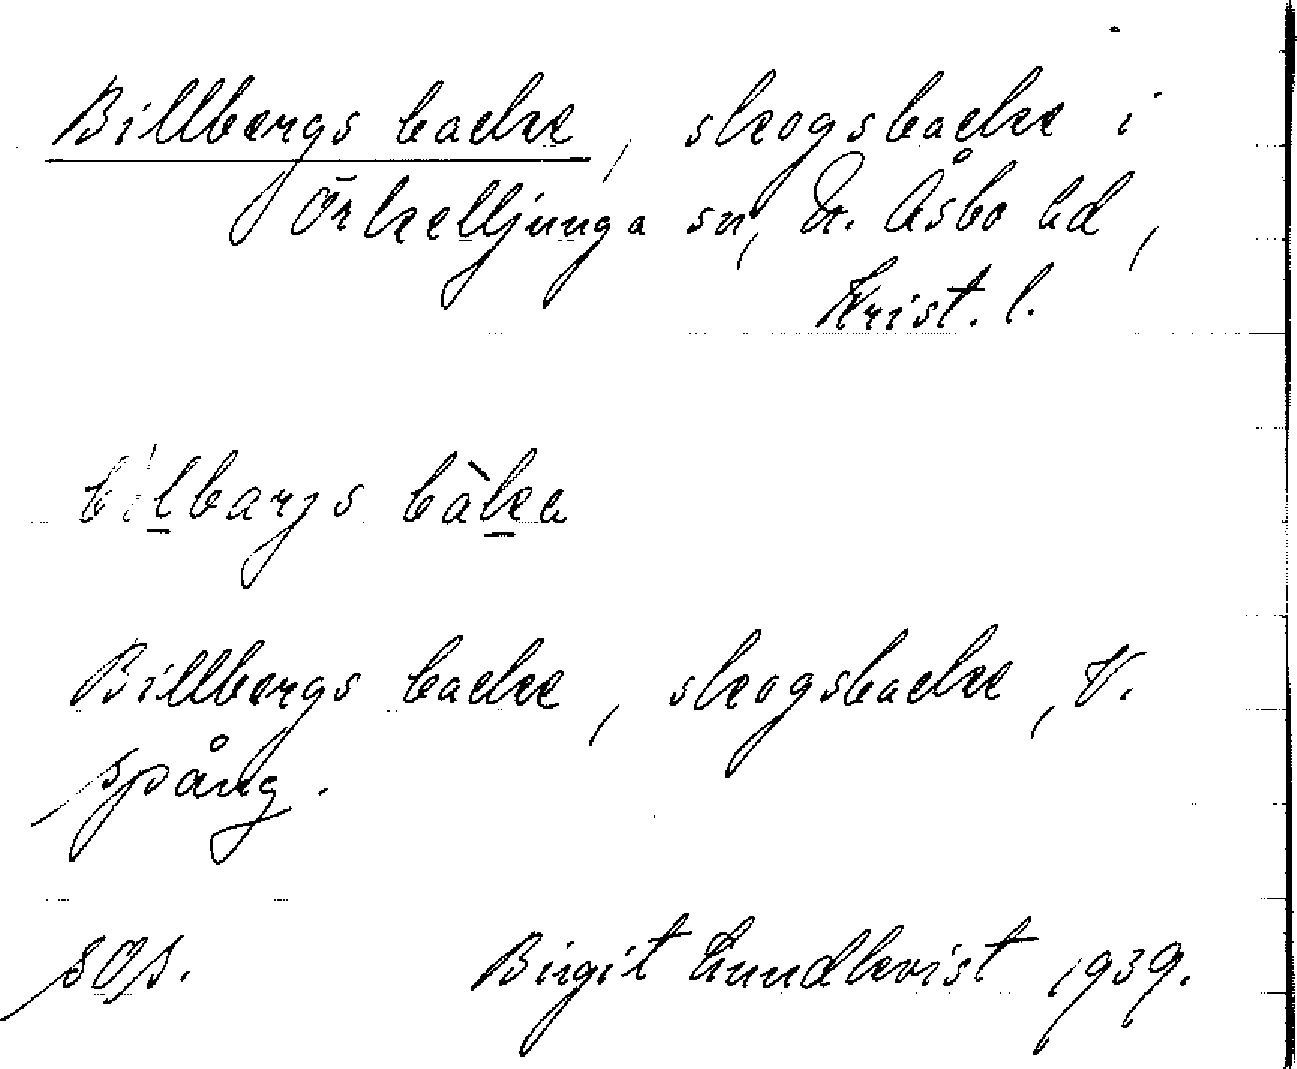 Billbergs backe, skogsbacke i
Örkelljunga sn, N. Åsbo hd,
Krist. l.
bilbarjs bàka
Billbergs backe, skogsbacke, V.
Spång.
Birgit Lundkvist 1939.